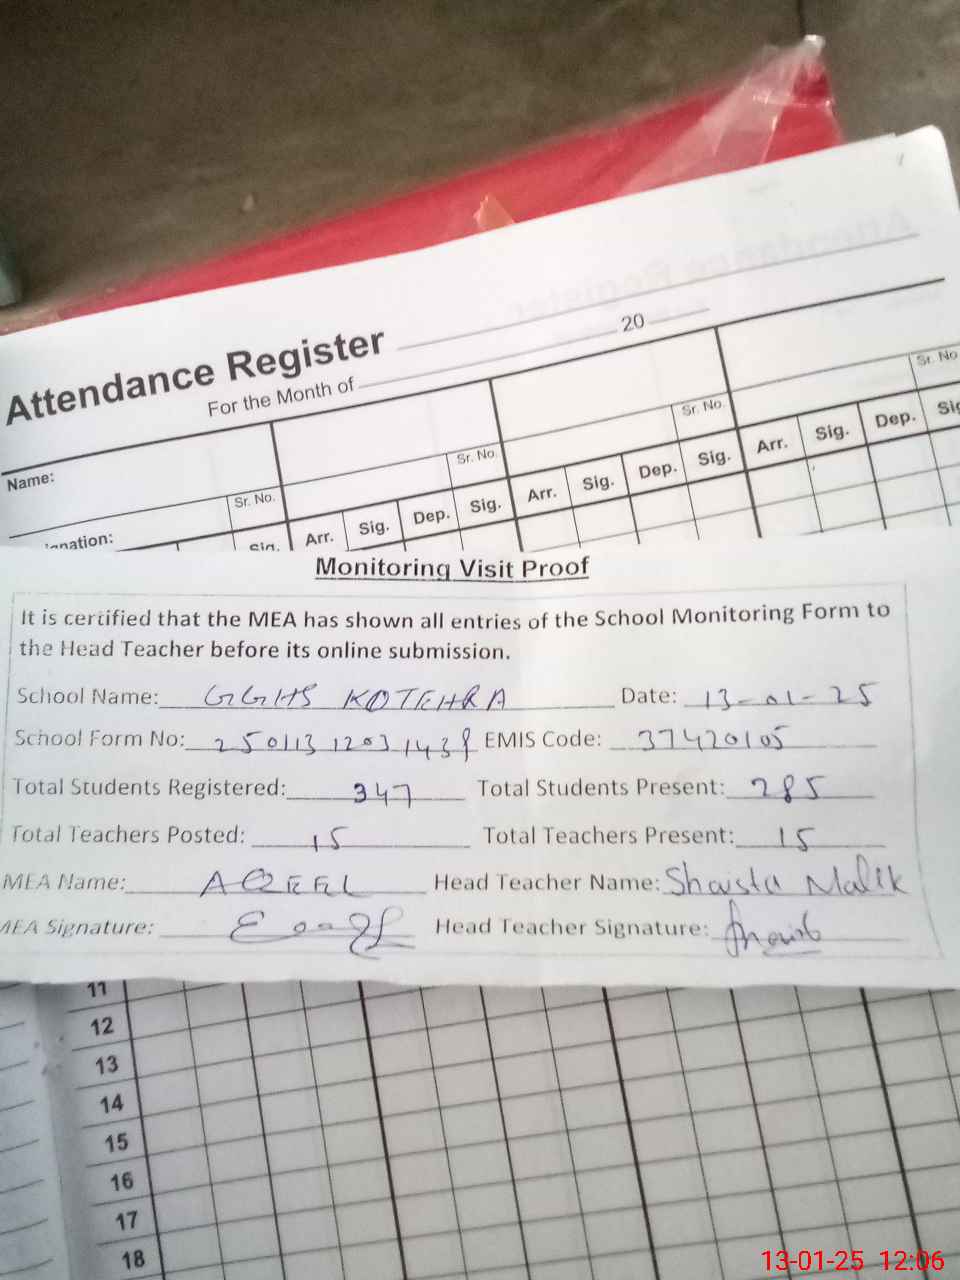 Attendance Register
For the Month of 20
Name:
Sr. No. Sr. No. Sr. No. Sr. No
Arr. Sig. Dep. Sig. Arr. Sig. Dep. Sig. Arr. Sig. Dep. Sig
Monitoring Visit Proof
It is certified that the MEA has shown all entries of the School Monitoring Form to
the Head Teacher before its online submission.
School Name: GGHS KOTEHRA Date: 13-01-25
School Form No: EMIS Code: 37420105
Total Students Registered: 347 Total Students Present: 285
Total Teachers Posted: 15 Total Teachers Present: 15
MEA Name: AQEEL Head Teacher Name: Shaista Malik
MEA Signature: Head Teacher Signature:
11
12
13
14
15
16
17
18
13-01-25 12:06